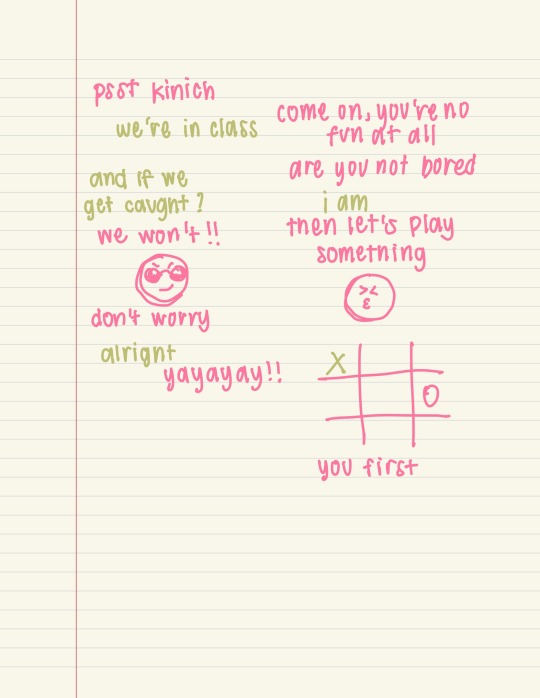 psst kinich
we're in class
come on, you're no
fun at all
are you not bored
i am
then let's play
something
and if we
get caught?
we won't!!
don't worry
alright
yayayay!!
X
O
you first